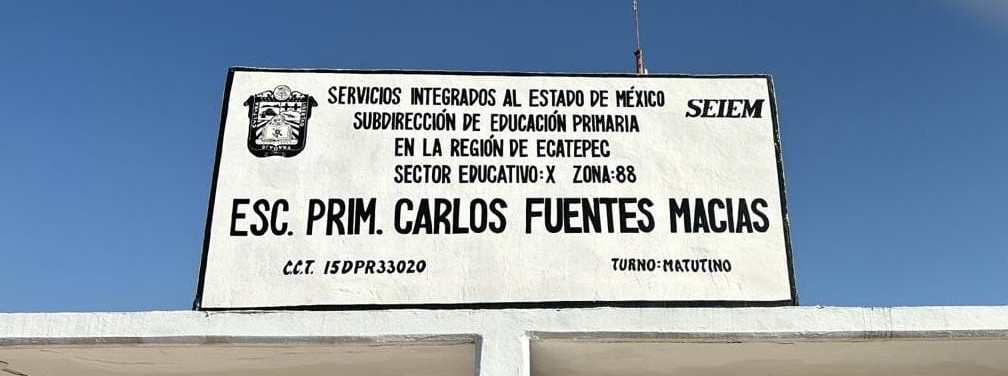 SERVICIOS INTEGRADOS AL ESTADO DE MÉXICO
SEIEM
SUBDIRECCIÓN DE EDUCACIÓN PRIMARIA
EN LA REGIÓN DE ECATEPEC
SECTOR EDUCATIVO:X ZONA:88
ESC. PRIM. CARLOS FUENTES MACIAS
C.C.T. 15DPR33020
TURNO:MATUTINO